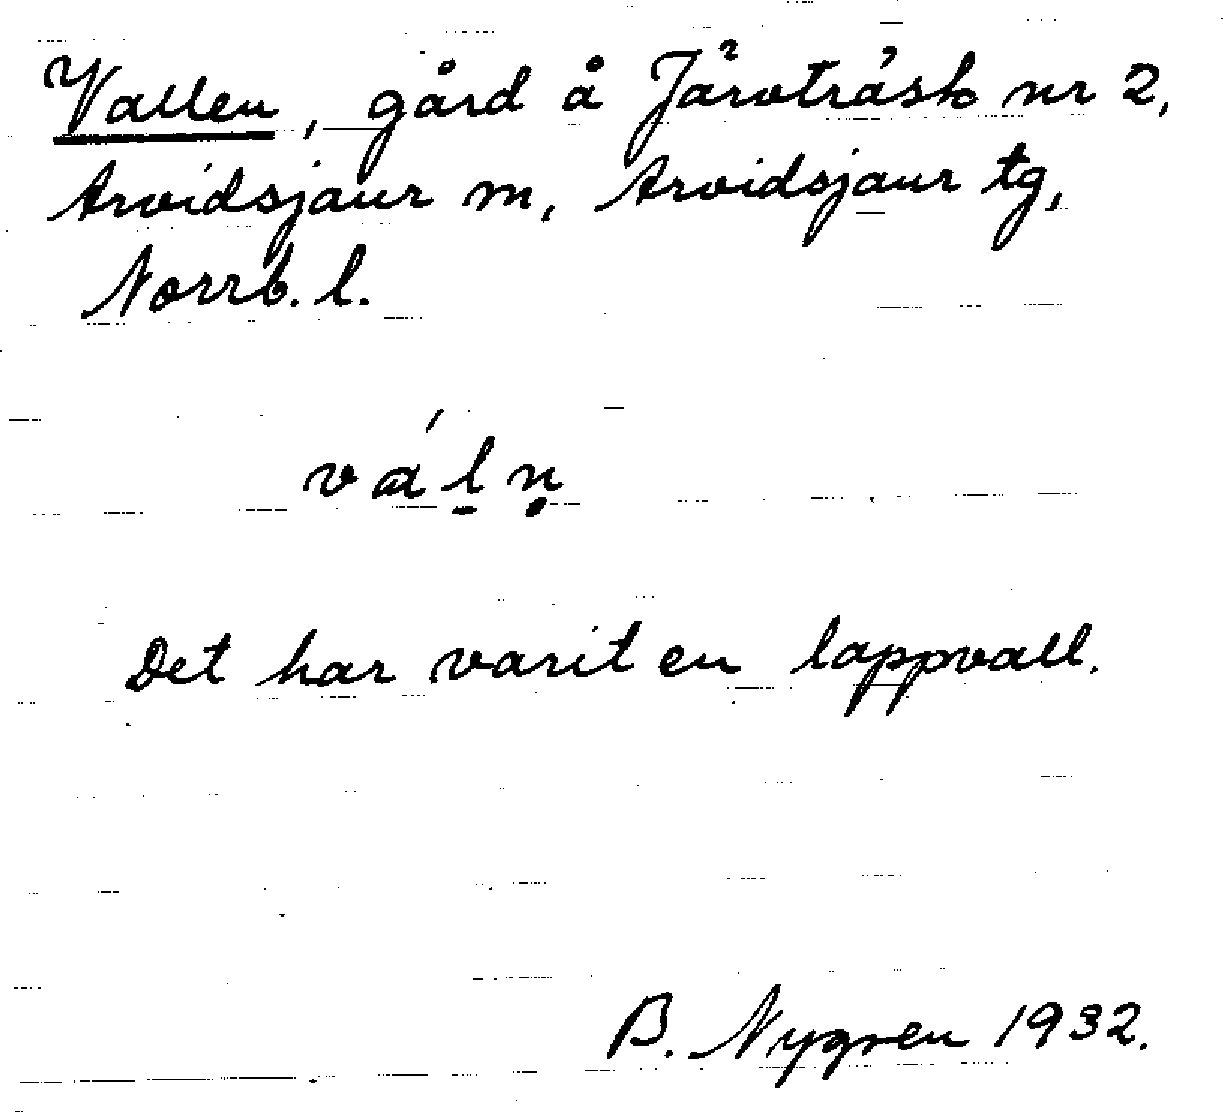 Vallen, gård å Järvträsk nr 2,
Arvidsjaur m, Arvidsjaur tg,
Norrb. l.
vál̠ṇ
Det har varit en lappvall.
B. Nygren 1932.